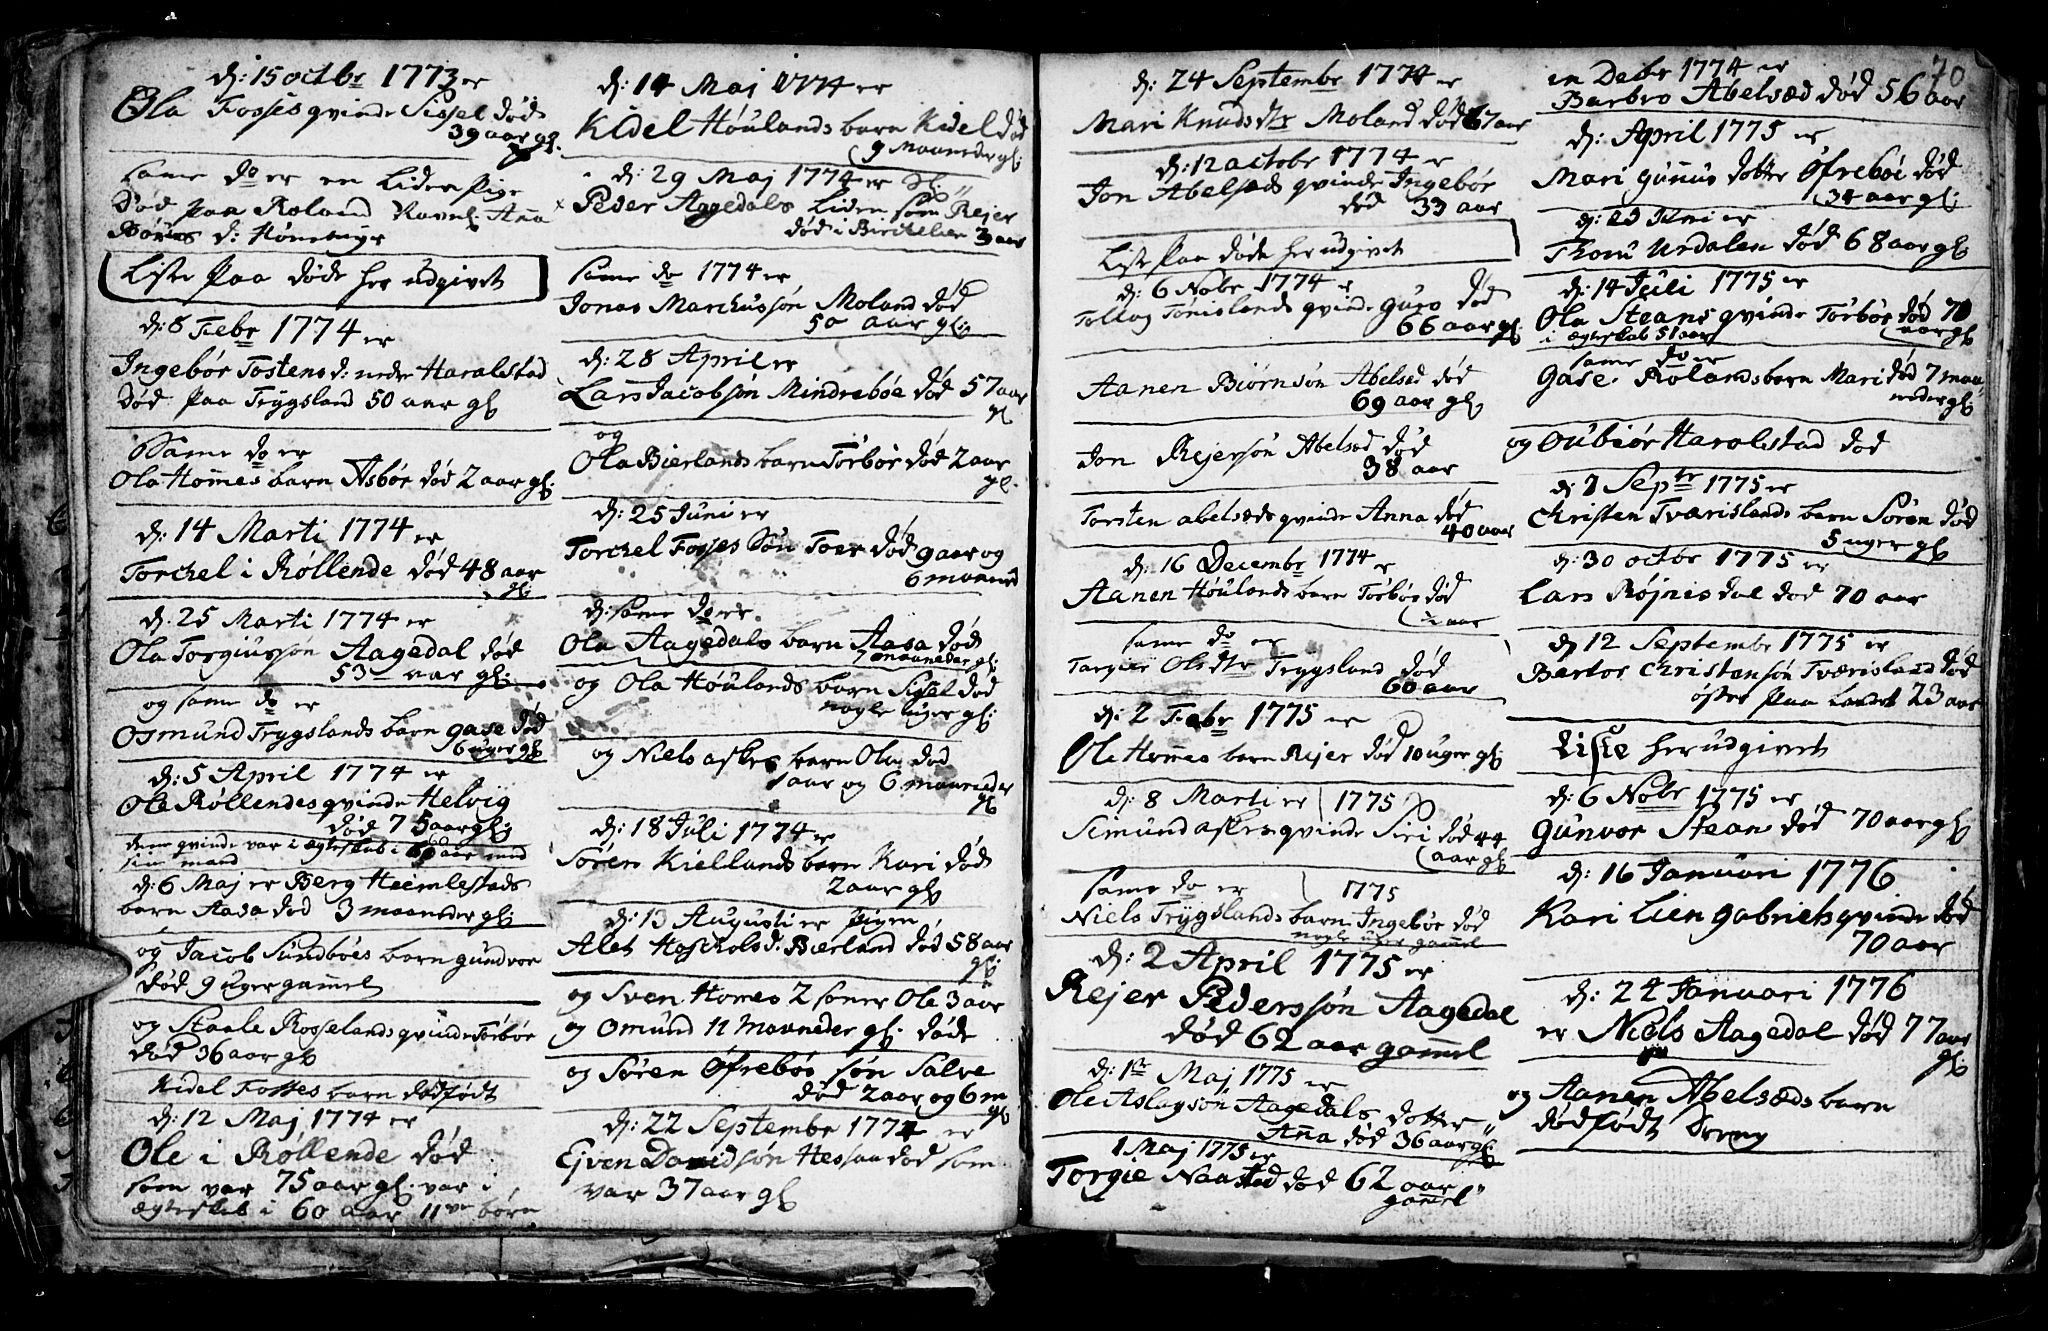 d: 15 octbr 1773 er
Ola Fosses qvinde Sissel død
39 aar gl.
same do er en liden pige
død paa Røland Ravnl: Anna
d: Hønemyr
Liste paa døde her udgivet
d: 8 Febr 1774 er
Ingebør Tostens d: nedre Haralstad
død paa Trygsland 50 aar gl
Same do er
Ola Homes barn Asbør død 2 aar gl:
d: 14 Marti 1774 er
Torchel i Røllende død 48 aar
gl:
d: 25 Marti 1774 er
Ola Torgiussøn Aagedal død
53 aar gl:
og same do er
Osmund Trygslands barn gase død
6 uger gl
d: 5 April 1774 er
Ola Røllendes qvinde Helvig
død 75 aar gl:
denne qvinde var i ægteskab i 60 aar med
sin mand
d: 6 Maj er Berg Heimlestads
barn Aasa død 3 maaneder gl:
og Jacob Sundbøes barn gundvor
død 9 uger gammel
og Staale Rosselands qvinde Torbør
død 36 aar gl
Kidel Fosses barn dødfødt
d: 12 Maj 1774 er
Ole i Røllende død
som var 75 aar gl: var i
ægteskab i 60 aar 11ve børn
d: 14 Maj 1774 er
Kidel Høulands barn Kidel død
9 Maaneder gl:
d: 29 Maj 1774 er
Peder Aagedals liden søn Rejer
død i Birchelien 3 aar
same do 1774 er
Jonas Marchussøn Moland død
50 aar gl:
d: 28 April er
Lars Jacobsøn Mindrebøe død 57 aar
gl
og
Ola Bierlands barn Torbør død 2 aar
gl.
d: 25 Juni er
Torchel Fosses Søn Toer død 9 aar og
6 maaned
d: same do er
Ola Aagedals barn Aasa død
7 maaneder gl:
og Ola Høulands barn Sisel død
nogle uger gl:
og Niels askes barn Ola død
1 aar og 6 maaneder
gl
d: 18 Juli 1774 er
Søren Kiellands barn Kari død
2 aar gl
d: 13 Augusti er pigen
Alet Hoschols d: Bierland død 58 aar
gl:
og Sven Homes 2 søner Ole 3 aar
og Omund 11 Maaneder gl: døde
og Søren Øfrebøs søn Salve
død 2 aar og 6 m
gl
d: 22 Septembr 1774 er
Ejven Davidsøn Hessaa død som
var 37 aar gl
70
d: 24 Septembr 1774 er
Mari Knudsdtr Moland død 67 aar
d: 12 octobr 1774 er
Jon Abelsæds qvinde Ingebør
død 33 aar
Liste paa døde her udgivet
d: 6 Nobr 1774 er
Tollag Tønislands qvinde guro død
66 aar gl:
Aanen Biørnsøn Abelsæd død
69 aar gl
Jon Rejersøn Abelsæd død
38 aar
Torsten abelsæds qvinde Anna død
40 aar
d: 16 Decembr 1774 er
Aanen Høulands barn Torbør død
½ aar
same do er
Targier Olsdtr Trygsland død
60 aar
d: 2 Febr 1775 er
Ole Homes barn Rejer død 10 uger gl:
d: 8 Marti er 1775
Simund askes qvinde Siri død 44
aar gl:
same do er 1775
Niels Trygslands barn Ingebør død
nogle uger gammel
d: 2 April 1775 er
Rejer Pederssøn Aagedal
død 62 aar gammel
d: 1te Maj 1775 er
Ole Aslagsøn Aagedals dotter
Anna død 36 aar gl:
1 Maj 1775 er
Torgie Naastad død 62 aar
gammel
en Decbr 1774 er
Barbro Abelsæd død 56 aar
d: April 1775 er
Mari gunnus dotter Øfrebøe død
34 aar gl:
d: 23 er
Thom Urdalen død 68 aar gl:
d: 14 Juli 1775 er
Ola Steans qvinde Torbør død 70
i ægteskab 51 aar
aar gl
same do er
Gase Rølands barn Mari død 7 maa
neder gl:
og Oubiør Haralstad død
d: 7 Septr 1775 er
Christen Tværeslands barn Søren død
5 uger gl
d: 30 octbr 1775 er
Lars Røjnesdal død 70 aar
d: 12 Septembr 1775 er
Bertor Christensøn Tværesland død
øster paa Landet 23 aar
Liste her udgivet
d: 6 Nobr 1775 er
Gunvor Stean død 70 aar gl
d: 16 Januari 1776
Kari Lien gabriels qvinde død
70 aar
d: 24 Januari 1776
er Niels Aagedal død 77 aar
gl
og Aanen Abelsæds barn
dødfødt Dreng